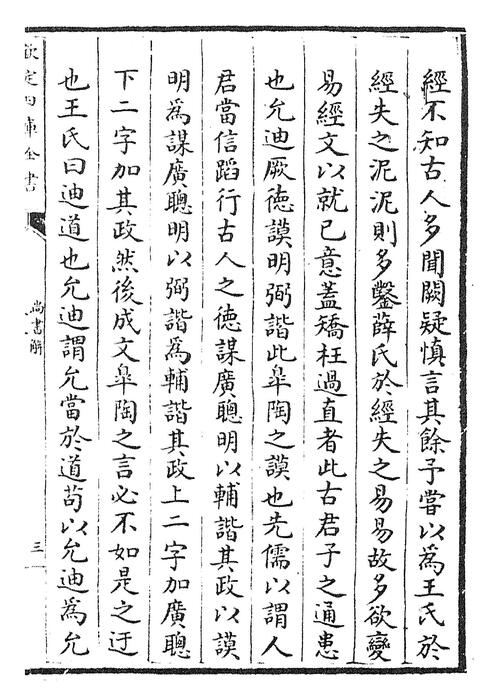 經不知古人多聞闕疑慎言其餘予嘗以為王氏於
經失之泥泥則多鑿薛氏於經失之易易故多欲變
易經文以就已意蓋矯枉過直者此古君子之通患
也允迪厥德謨明弼諧此臯陶之謨也先儒以謂人
君當信蹈行古人之德謀廣聰明以輔諧其政以謨
明為謀廣聰明以弼諧為輔諧其政上二字加廣聰
下二字加其政然後成文臯陶之言必不如是之迂
也王氏曰迪道也允迪謂允當於道苟以允迪為允
欽定四庫全書
尚書解
三